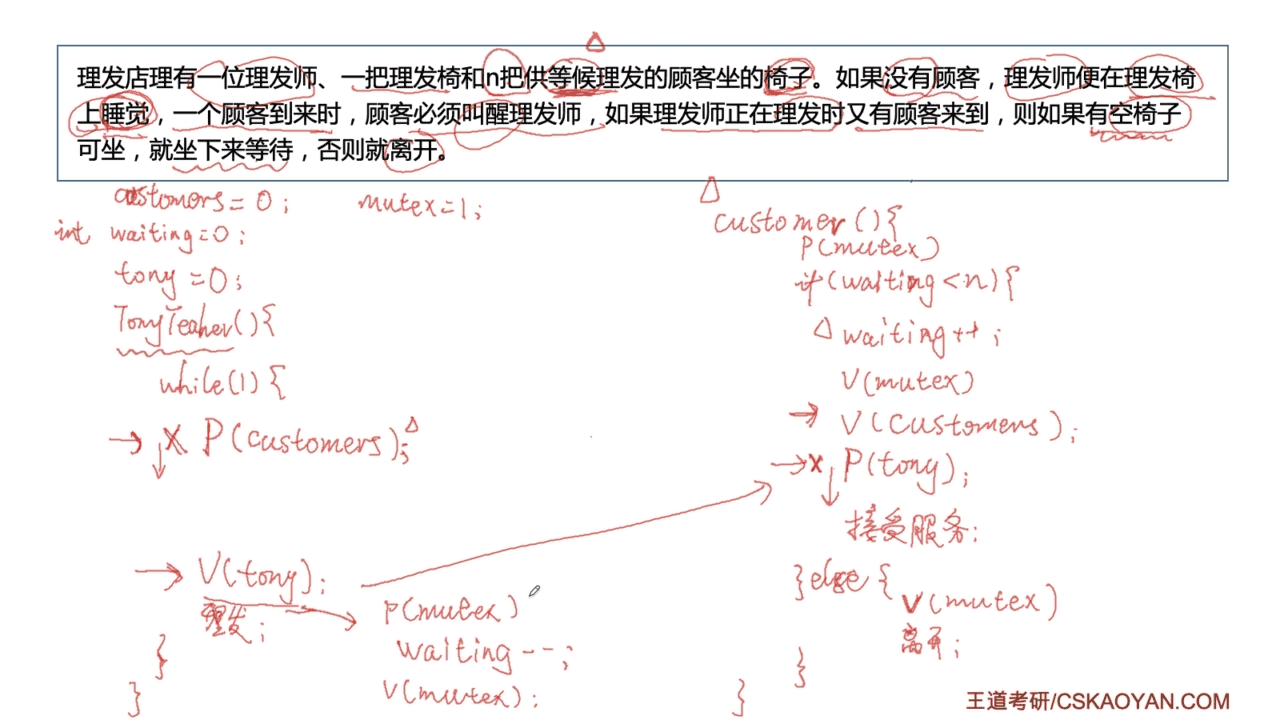 理发店理有一位理发师、一把理发椅和n把供等候理发的顾客坐的椅子。如果没有顾客，理发师便在理发椅
上睡觉，一个顾客到来时，顾客必须叫醒理发师，如果理发师正在理发时又有顾客来到，则如果有空椅子
可坐，就坐下来等待，否则就离开。
customers=0; mutex=1;
int waiting=0;
tony=0;
TonyTeaher(){
while(1){
P(customers);
V(tony);
理发;
P(mutex)
waiting--;
V(mutex);
}
}
customer(){
P(mutex)
if(waiting<n){
waiting++;
V(mutex)
V(Customers);
P(tony);
接受服务;
}else{
V(mutex)
离开;
}
}
王道考研/CSKAOYAN.COM